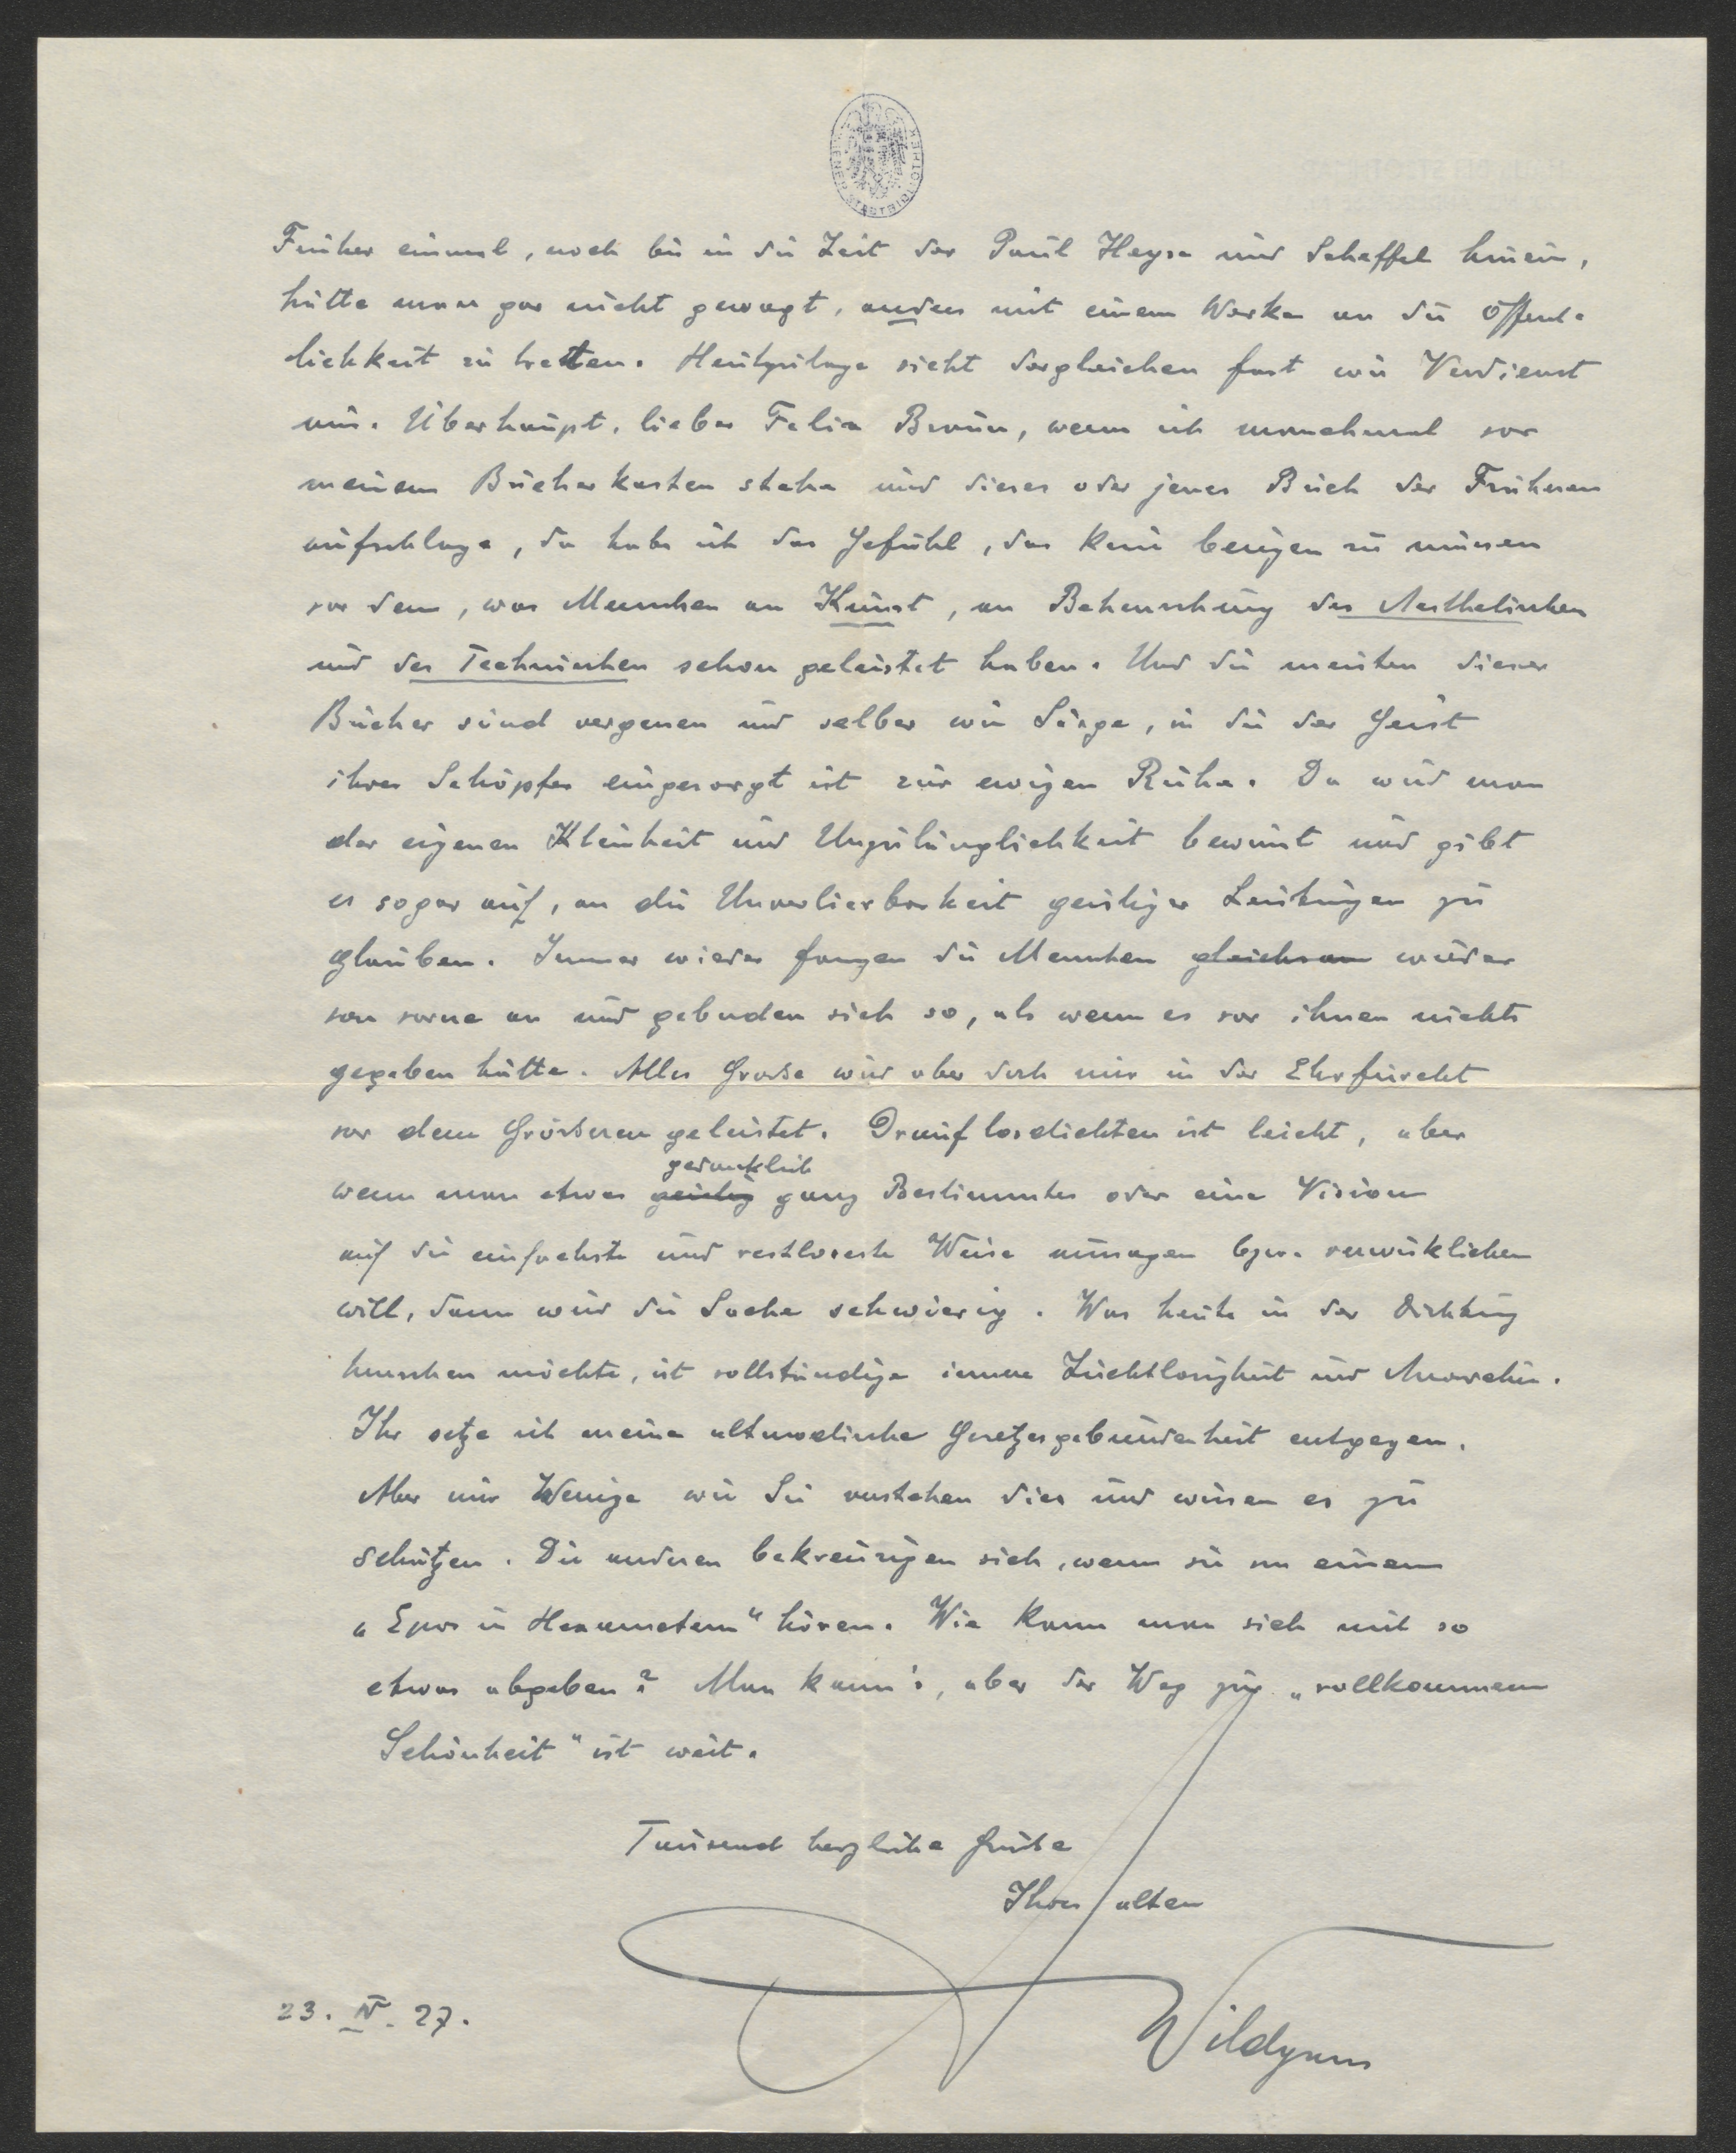 WIENER STADTBIBLIOTHEK
Früher einmal, noch bis in die Zeit der Paul Heyse und Scheffel hinein,
hätte man gar nicht gewagt, anders mit einem Werke an die Öffent-
lichkeit zu tretten. Heutzutage sieht dergleichen fast wie Verdienst
aus. Überhaupt, lieber Felix Braun, wenn ich manchmal vor
meinem Bücherkasten stehe und dieses oder jenes Buch der Früheren
aufschlage, da habe ich das Gefühl, das Knie beugen zu müssen
vor dem, was Menschen an Kunst, an Beherrschung des Aesthetischen
und des Technischen schon geleistet haben. Und die meisten dieser
Bücher sind vergessen und selber wie Särge, in die der Geist
ihres Schöpfers eingesargt ist zur ewigen Ruhe. Da wird man
der eigenen Kleinheit und Unzulänglichkeit bewusst und gibt
es sogar auf, an die Unverlierbarkeit geistiger Leistungen zu
glauben. Immer wieder fangen die Menschen gleichsam wieder
von vorne an und gebärden sich so, als wenn es vor ihnen nichts
gegeben hätte. Alles Große wird aber doch nur in der Ehrfurcht
vor dem Größeren geleistet. Drauflosdichten ist leicht, aber
gedanklich
wenn man etwas geistig ganz Bestimmtes oder eine Vision
auf die einfachste und restloseste Weise aussagen bzw. verwirklichen
will, dann wird die Sache schwierig. Was heute in der Dichtung
herrschen möchte, ist vollständige innere Zuchtlosigkeit und Anarchie.
Ihr setze ich meine altmodische Gesetzesgebundenheit entgegen.
Aber nur Wenige wie Sie verstehen dies und wissen es zu
schätzen. Die anderen bekreuzigen sich, wenn sie von einem
„Epos in Hexametern“ hören. Wie kann man sich mit so
etwas abgeben? Man kann's, aber der Weg zur „vollkommenen
Schönheit“ ist weit.
Tausend herzliche Grüße
Ihres alten
Wildgans
23. IV. 27.